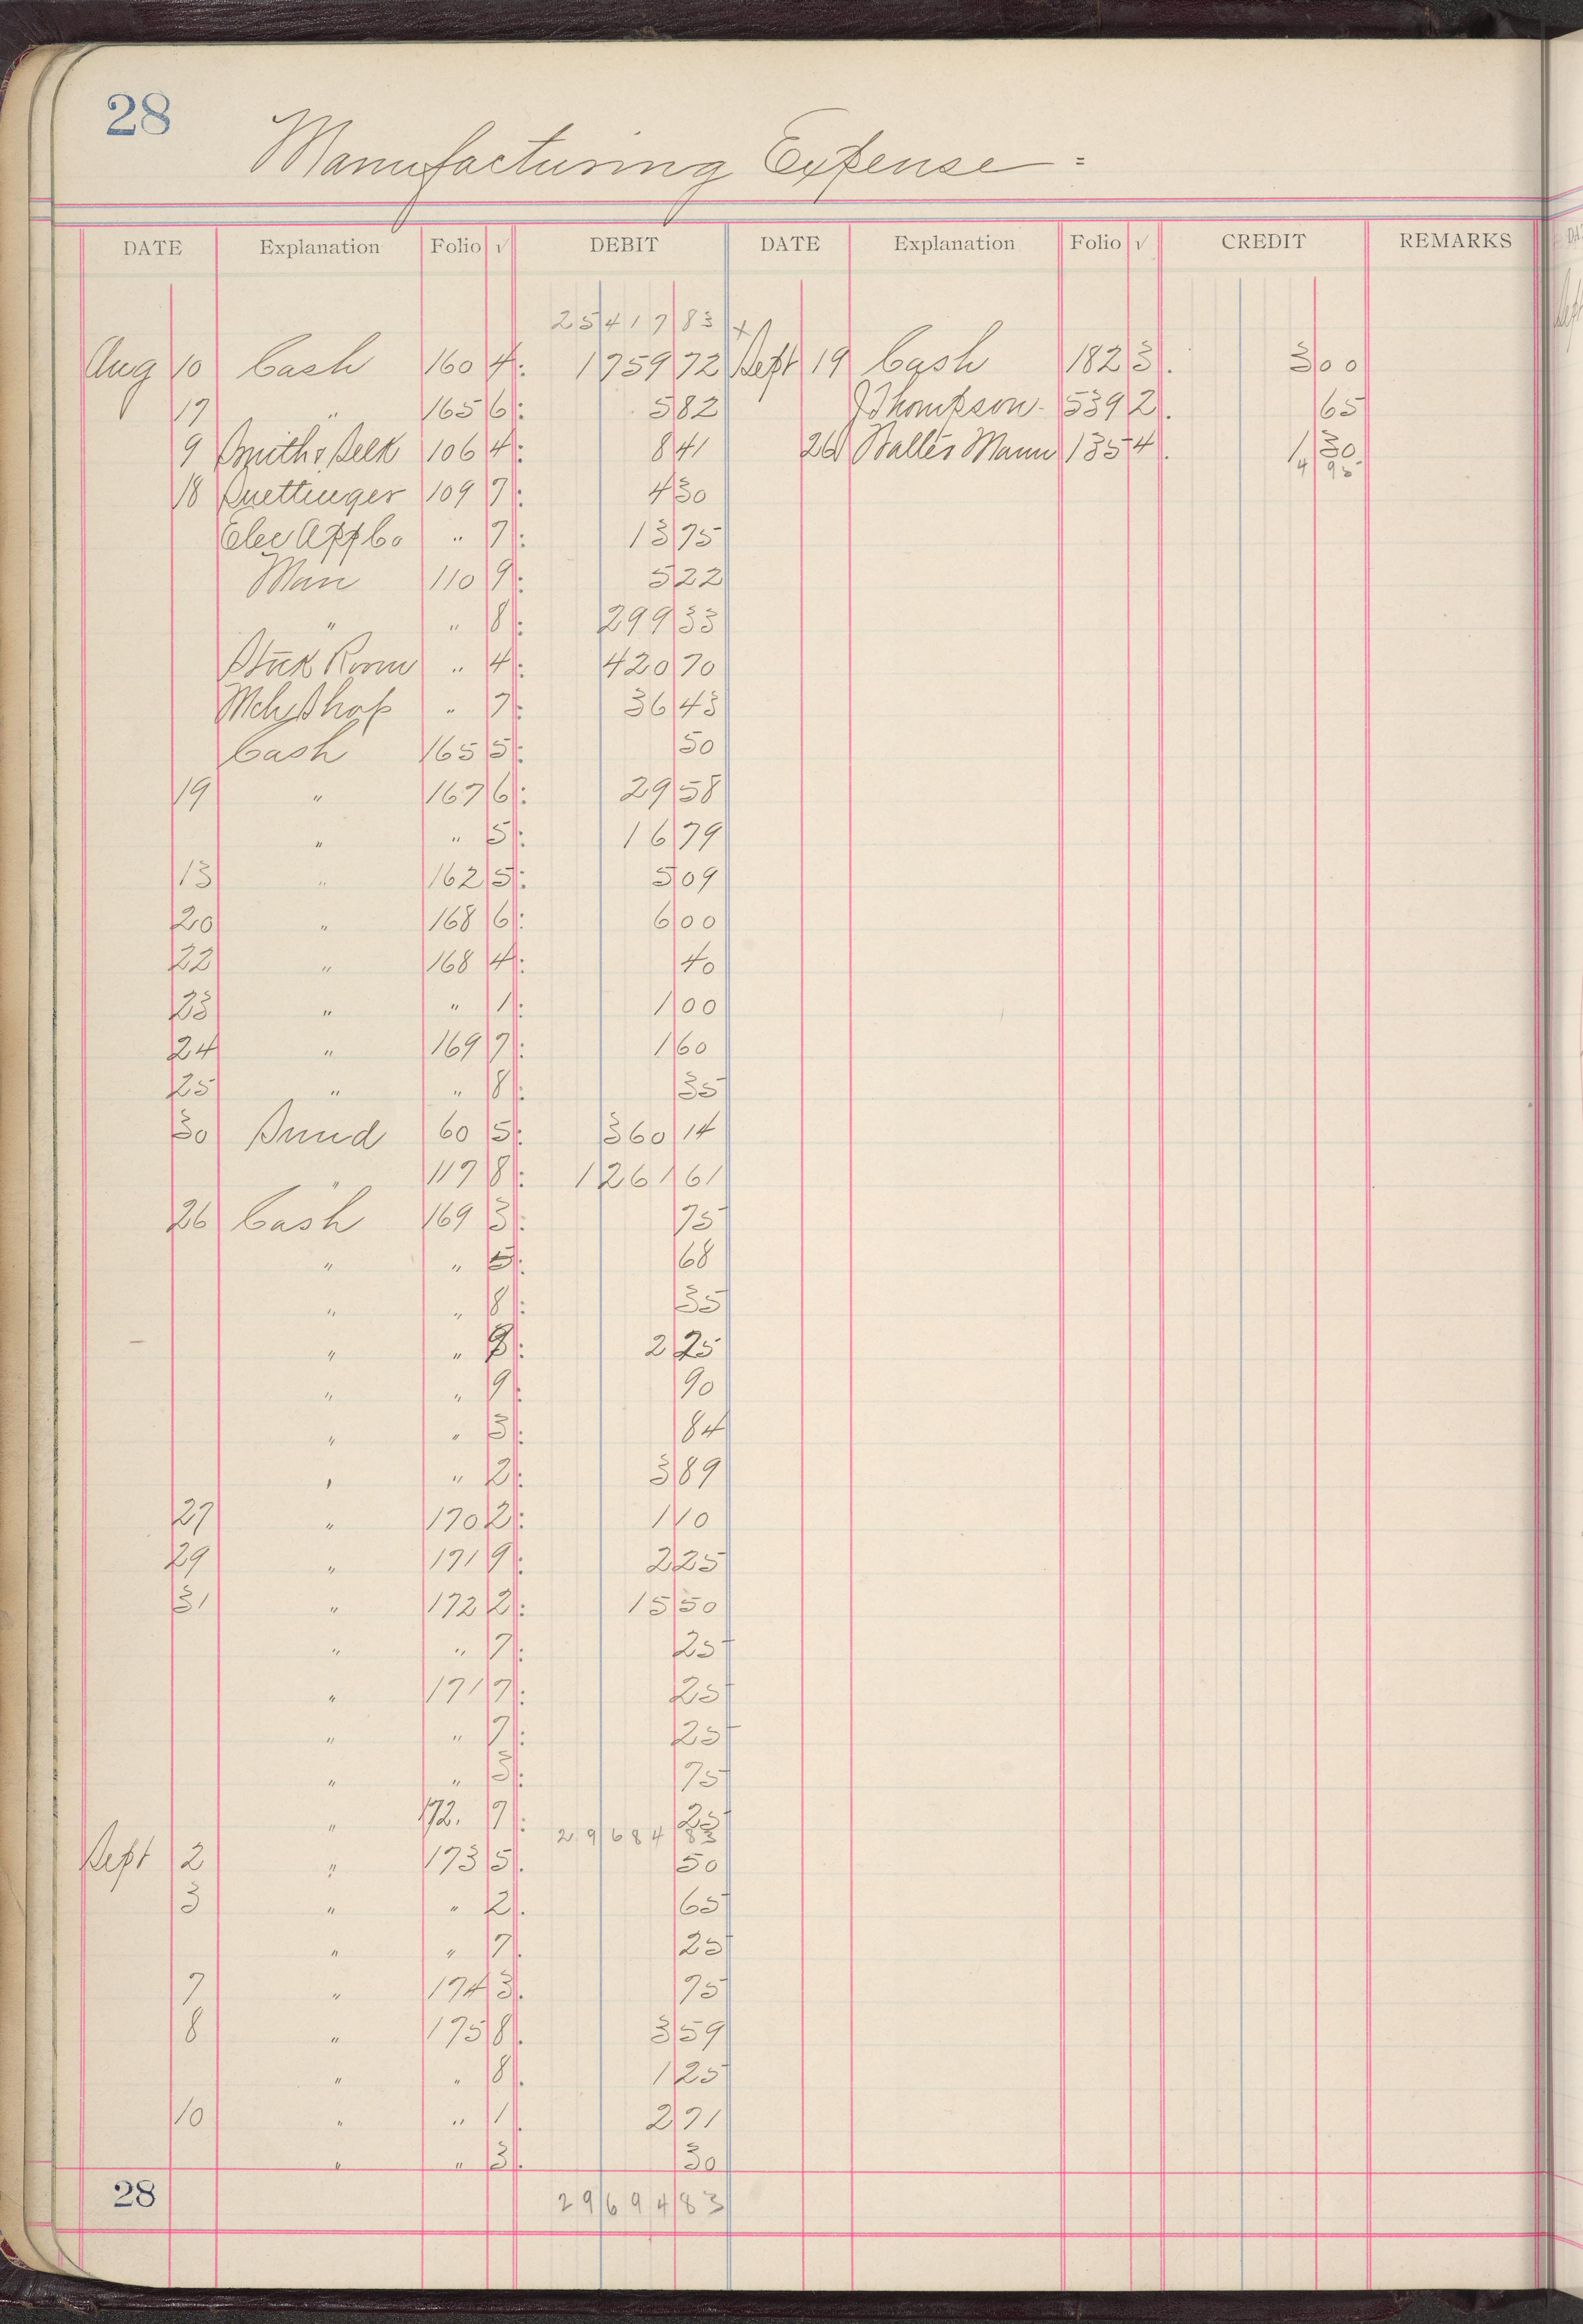 28
Manufacturing Expense =
DATE Explanation Folio √ DEBIT DATE Explanation Folio √ CREDIT REMARKS
25417 83 x
Aug 10 Cash 160 4 1759 72 Sept 19 Cash 182 3 3 00
17 " 165 6 5 82 J Thompson 539 2 65
9 Smith & Selk 106 4 8 41 26 Walter Mann 135 4 1 30
18 Ruettinger 109 7 4 30 4 95
Elec App Co " 7 13 75
Man 110 9 5 22
" " 8 299 33
Stck Room " 4 420 70
Mch Shop " 7 36 43
Cash 165 5 50
19 " 167 6 29 58
" " 5 16 79
13 " 162 5 5 09
20 " 168 6 6 00
22 " 168 4 40
23 " " 1 1 00
24 " 169 7 1 60
25 " " 8 35
30 Sund 60 5 360 14
" 117 8 1261 61
26 Cash 169 3 75
" " 5 68
" " 8 35
" " 2 25
" " 9 90
" " 3 84
" " 2 3 89
27 " 170 2 1 10
29 " 171 9 2 25
31 " 172 2 15 50
" " 7 25
" 171 7 25
" " 7 25
" " 3 75
" 172. 7 25
29684 83
Sept 2 " 173 5 50
3 " " 2 65
" " 7 25
7 " 174 3 75
8 " 175 8 3 59
" " 8 1 25
10 " " 1 2 71
" " 3 30
28 29694 83